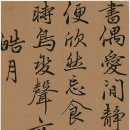 書偶愛閒静
便欣然忘食
時鳥變聲亦
皓月